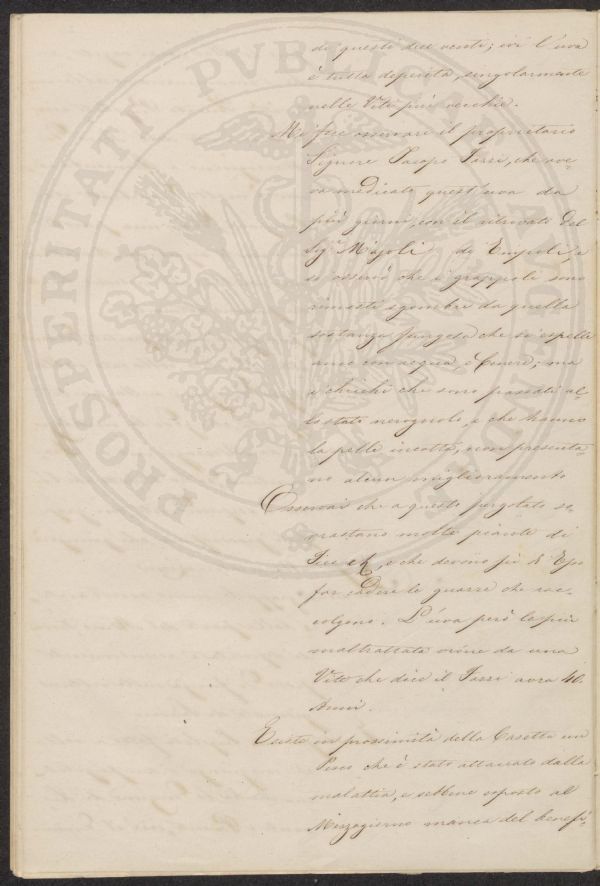 di questi due venti; ivi l'uva
è tutta deperita, singolarmente
nelle Viti più vecchie.
Mi fece osservare il proprietario
Signore Jarri, che ave-
va medicato quest'uva da
più giorni, con il ritrovato Del
Sig.r Majoli di Empoli, e
si osservò che i grappoli sono
rimasti sgombri da quella
sostanza fungosa che si espelle
anco con acqua, e Cenere; ma
i chicchi che sono passati al-
lo stato nerognolo, e che hanno
la pelle incotta, non presenta-
no alcun miglioramento
Osservai che a questo pergolato so-
vrastano molte piante di
e che devono
far cadere le guazze che rac-
colgono. L'uva però la più
maltrattata viene da una
Vite che dice il Jarri avrà 40.
Anni.
Esiste in prossimità della Casetta un
Pesco che è stato attaccato dalla
malattia, e sebbene esposto al
Mezzogiorno manca del benefi-
PROSPERITATI PVBLICAE